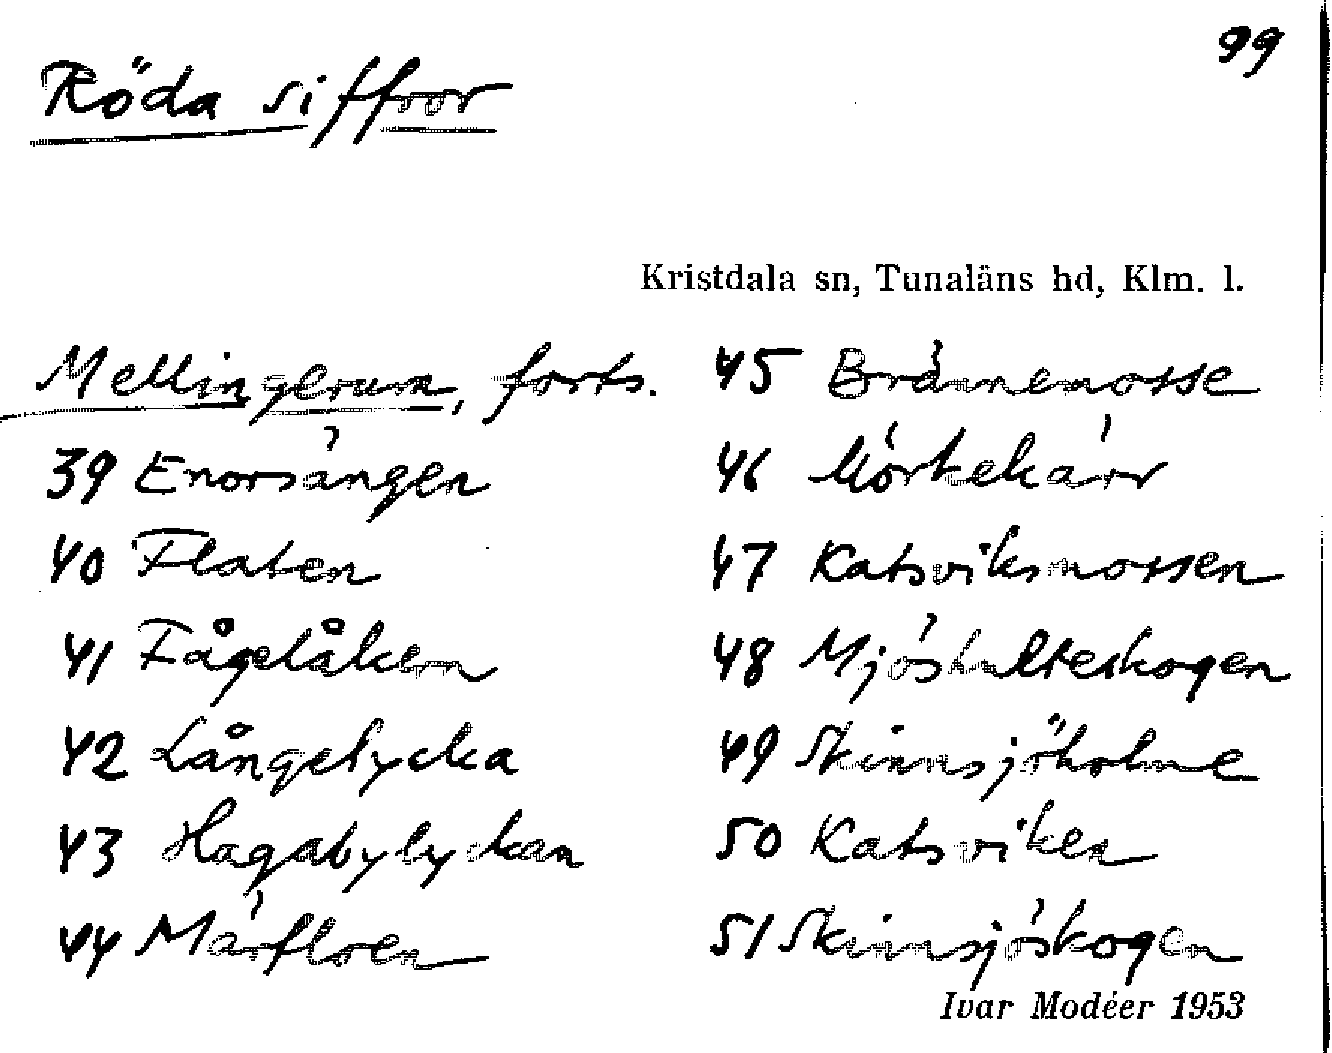 99
Röda siffror
Kristdala sn, Tunaläns hd, Klm. l.
Mellingerum, forts.
39 Enorsängen
40 Flaten
41 Fågelåkern
42 Långelycka
43 Hagabylyckan
44 Märfloen
45 Brännemosse
46 Mörkekärr
47 Katsviksmossen
48 Mjöshulteskogen
49 Skinnsjöholme
50 Katsviken
51 Skinnsjöskogen
Ivar Modéer 1953